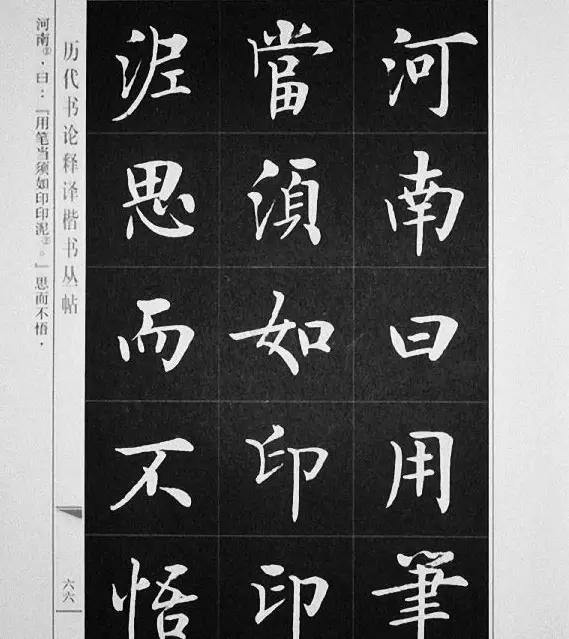 河南曰用筆
當須如印印
泥思而不悟
历代书论释译楷书丛帖
六六
河南②，曰：“用笔当须如印印泥②。”思而不悟，